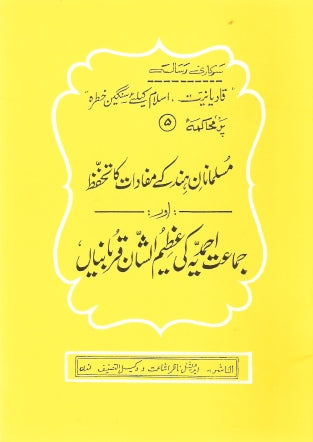 سرکاری رسالہ
"قادیانیت ۔ اسلام کیلئے سنگین خطرہ"
پر محاکمہ ۵
مسلمانانِ ہند کے مفادات کا تحفّظ
اور
جماعت احمدیّہ کی عظیم الشّان قربانیاں
الناشر:۔ ایڈیشنل ناظر اشاعت و وکیل التصنیف لندن